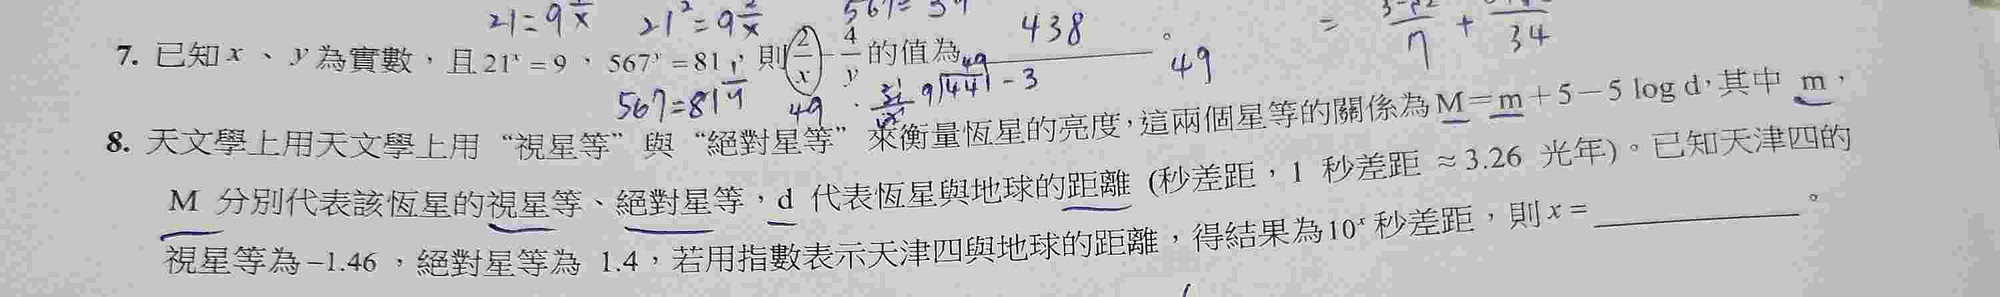 21=9^{1/x}　21²=9^{2/x}　567=
438
7. 已知 x、y 為實數，且 21^x = 9，567^y = 81，則 2/x − 4/y 的值為______。
49
567=81^{1/y}　49　9　441　− 3
34
8. 天文學上用天文學上用 “視星等” 與 “絕對星等” 來衡量恆星的亮度，這兩個星等的關係為 M=m+5−5 log d，其中 m，
M 分別代表該恆星的視星等、絕對星等，d 代表恆星與地球的距離 (秒差距，1 秒差距 ≈3.26 光年)。已知天津四的
視星等為 −1.46，絕對星等為 1.4，若用指數表示天津四與地球的距離，得結果為 10^x 秒差距，則 x =______。